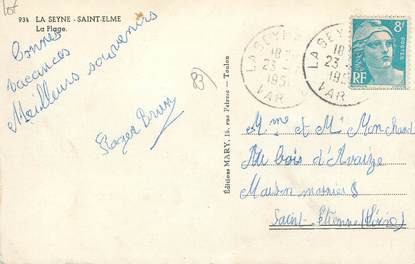 934 LA SEYNE - SAINT-ELME
La Plage.
Bonnes
vacances
Meilleurs souvenirs
Roger Brun
83
Éditions MARY, 15, rue Peiresc - Toulon
LA SEYNE
18
23
1951
VAR
LA SEYNE
18
23
195
VAR
8F
POSTES
RF
Mme et Mr Monchand
Au bois d'Avaize
Maison
Saint-Étienne (Loire)